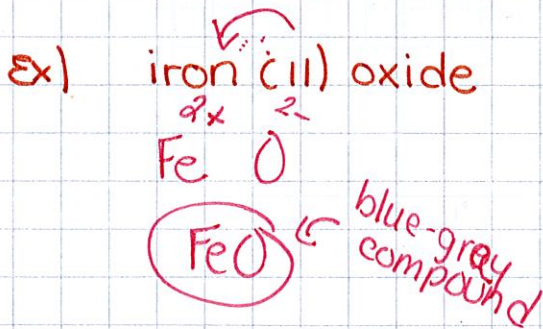 Ex) iron (II) oxide
2x 2-
Fe O
FeO
blue-gray
compound